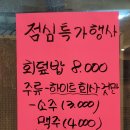 점심특가행사
회덮밥 8.000
주류-하이트회사것만
-소주(3.000)
맥주(4.000)